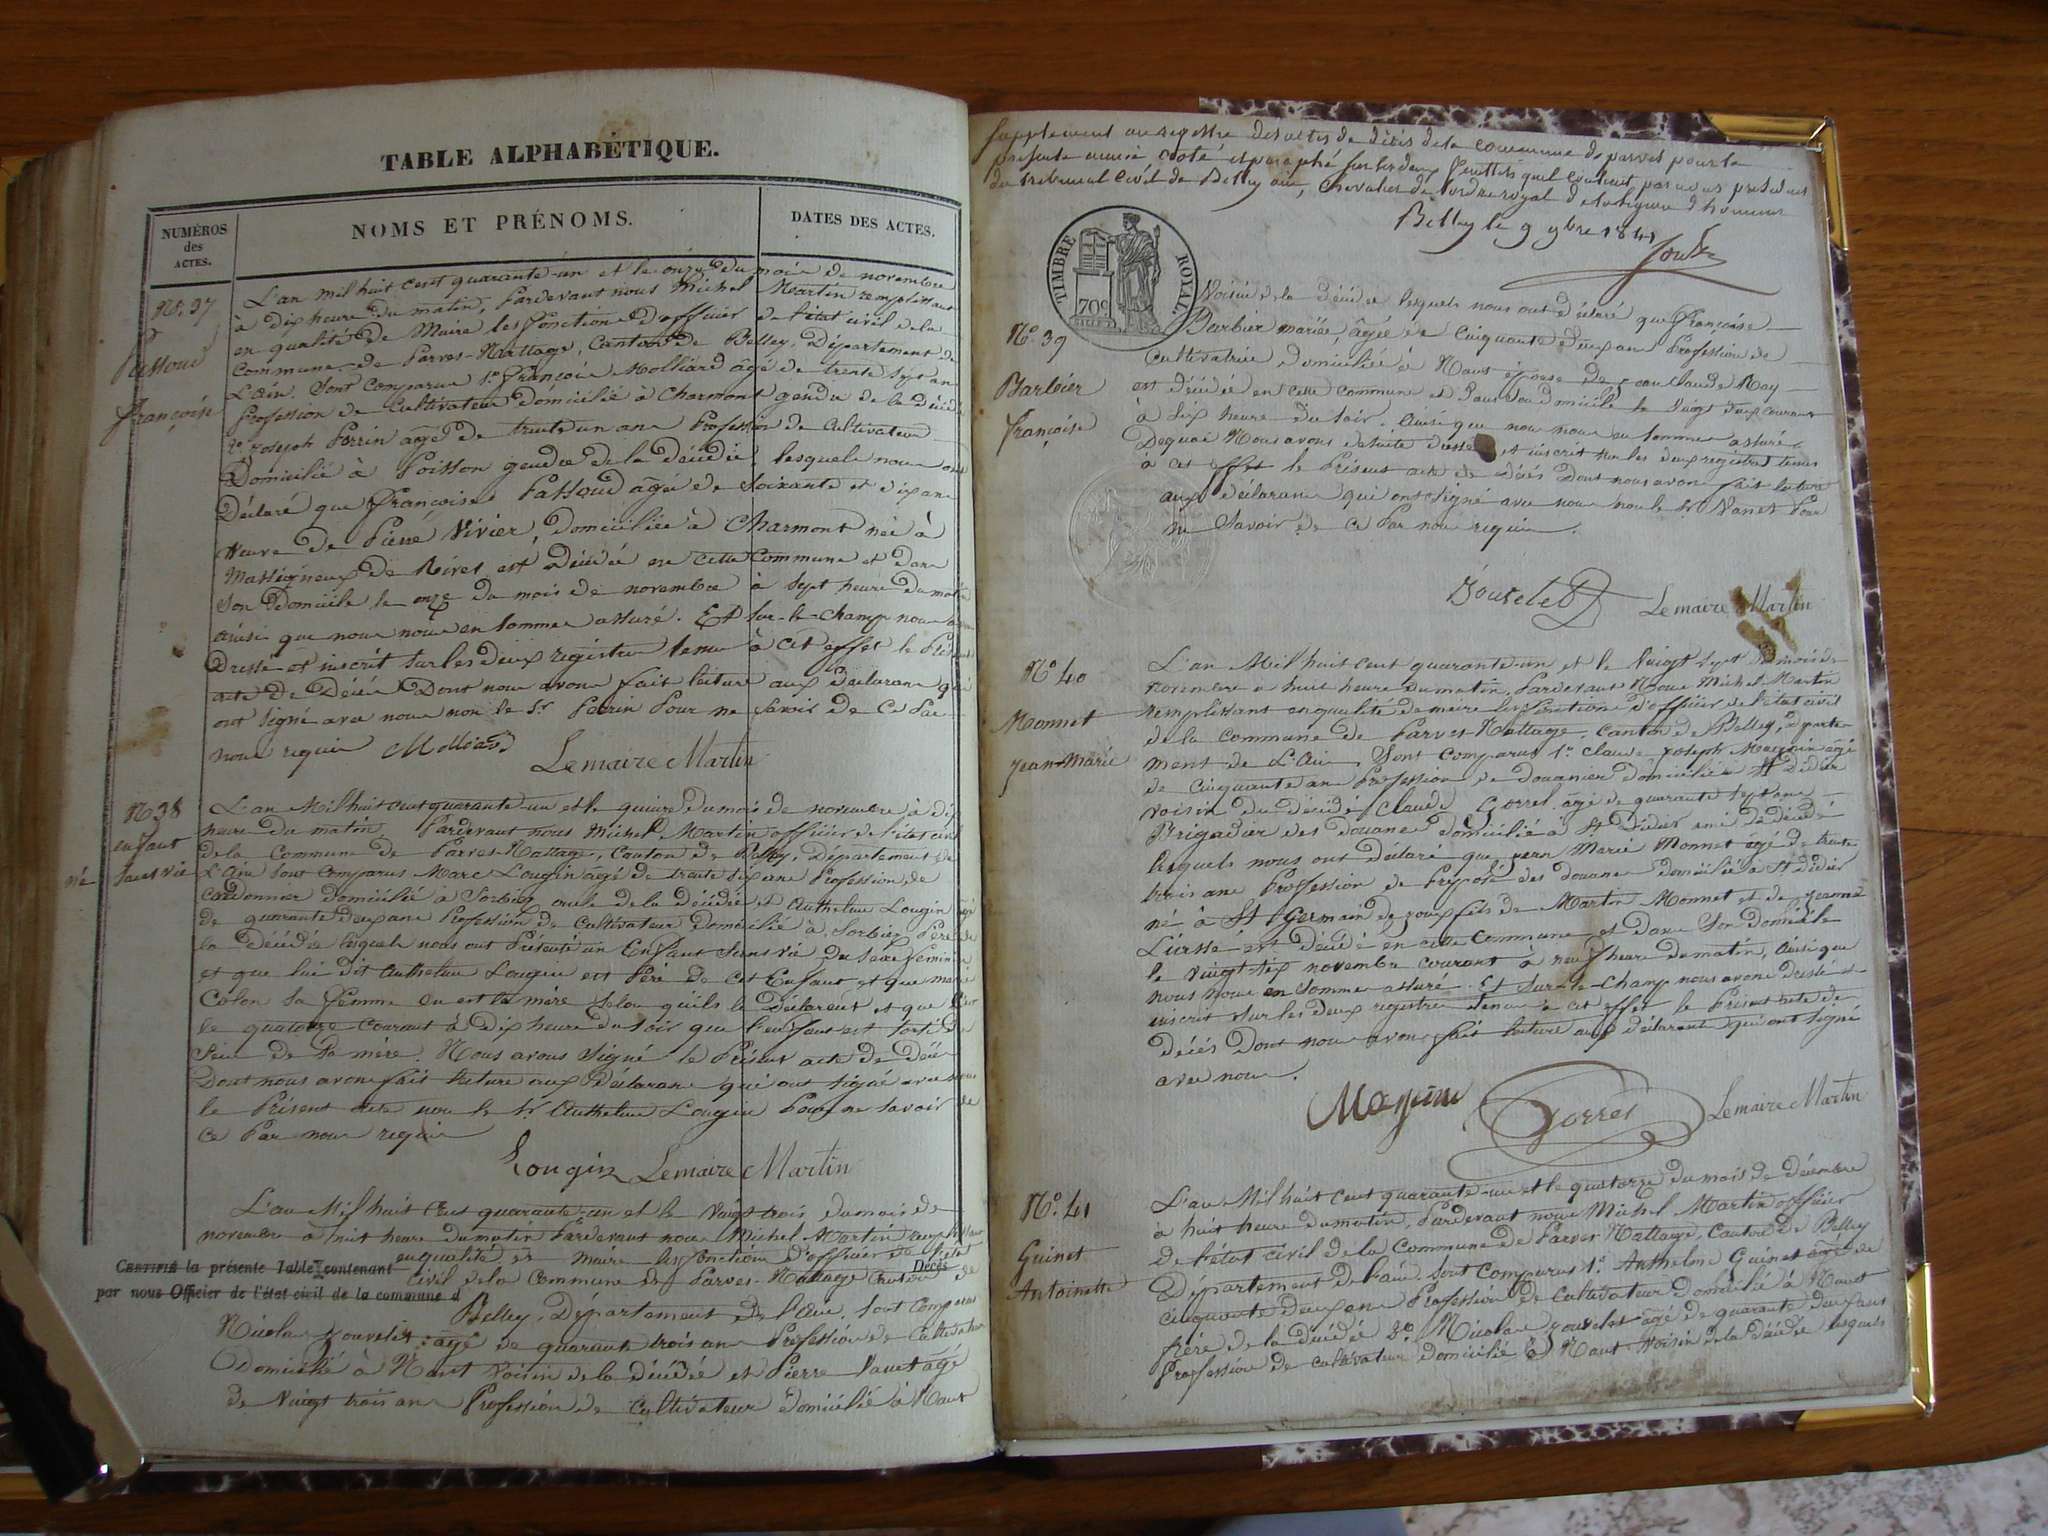 TABLE ALPHABÉTIQUE.
NUMÉROS
des
ACTES.
NOMS ET PRÉNOMS.
DATES DES ACTES.
No. 37
françoise
L'an mil huit cent quarante-un et le onze du mois de novembre
à dix heure du matin, Pardevant nous Michel Martin remplissant
en qualité de Maire les fonctions d'officier de l'état civil de la
commune de Parves-Nattage, Canton de Belley, Département de
L'ain. Sont comparus 1o. françois Molliard âgé de trente sept ans
Profession de cultivateur domicilié à Charmont gendre de la décédée
2o. joseph Perrin âgé de trente un ans Profession de cultivateur
Domicilié à Poisson gendre de la décédée, lesquels nous ont
Déclaré que françoise Passoud âgée de soixante et dix ans
veuve de Pierre Vivier, domiciliée à Charmont née à
Massigneux de Rives est décédée en cette commune et dans
son domicile le onze du mois de novembre à sept heure du matin
ainsi que nous nous en sommes assuré. Et sur-le-champ nous avons
Dressé et inscrit sur les deux registres tenus à cet effet le Présent
acte de Décès Dont nous avons fait lecture aux déclarans qui
ont signé avec nous non le Sr. Perrin Pour ne savoir de ce Par
nous requis Molliard
Lemaire Martin
N 38
enfant
né sans vie
L'an Mil huit cent quarante-un et le quinze du mois de novembre à dix
heure du matin, Pardevant nous Michel Martin officier de l'état civil
de la commune de Parves-Nattage, Canton de Belley, Département de
L'Ain sont comparus Marc Lougin âgé de trente six ans Profession de
cordonnier domicilié à Sorbier oncle de la décédée et Anthelme Lougin âgé
de quarante deux ans Profession de cultivateur domicilié à Sorbier Père de
la Décédée lesquels nous ont Présenté un Enfant sans vie du sexe féminin
et que lui dit Anthelme Lougin est Père de cet Enfant et que marie
Colon sa femme en est la mère selon qu'ils le déclarent et que c'est
le quatorze courant à Dix heure du soir que l'enfant est sorti du
sein de sa mère. Nous avons signé le Présent acte de Décès
Dont nous avons fait lecture aux Déclarans qui ont signé avec nous
le Présent acte non le Sr Anthelme Lougin Pour ne savoir de
ce Par nous requis
Lougin Lemaire Martin
L'an Mil huit Cent quarante-un et le Vingt trois du mois de
novembre à huit heure du matin Pardevant nous Michel Martin remplissant
en qualité de maire les fonctions d'officier de l'état
CERTIFIÉ la présente Table contenant Décès
civil de la Commune de Parves-Nattage Canton de
par nous Officier de l'état civil de la commune d
Belley, Département de l'ain. sont comparus
Nicolas jouvelet âgé de quarante trois ans Profession de Cultivateur
Domicilié à Nant Voisin de la décédée et Pierre Vanet âgé
de Vingt trois ans Profession de cultivateur domicilié à Nant
supplement au registre des actes de décès de la commune de parves pour la
présente année coté et paraphé sur les deux feuillets qu'il contient par nous président
du tribunal civil de Belley ain, Chevalier de l'ordre royal de la légion d'honneur
Belley le 9 9bre 1841
TIMBRE ROYAL
70c
No. 39
Barbier
françoise
Voisin de la décédée lesquels nous ont déclaré que françoise
Barbier mariée, âgée de cinquante deux ans Profession de
cultivatrice domiciliée à Nant épouse de jean Claude Roy
est décédée en cette commune et dans son domicile le vingt deux courant
à six heure du soir. ainsi que nous nous en sommes assuré.
Dequoi Nous avons desuite dressé et inscrit sur les deux registres tenus
à cet effet le Présent acte de décès Dont nous avons fait lecture
aux déclarans qui ont signé avec nous non le Sr Vanet Pour
ne savoir de ce Par nous requis.
Jouvelet Lemaire Martin
No. 40
Monnet
jean-Marie
L'an Mil huit cent quarante-un et le Vingt sept du mois de
novembre à huit heure du matin. Pardevant Nous Michel Martin
remplissant en qualité de maire les fonctions d'officier de l'état civil
de la commune de Parves-Nattage, Canton de Belley, départe-
ment de L'ain. Sont comparus 1o. claude joseph Magnin âgé
de cinquante ans Profession de douanier domicilié à St Didier
voisin du décédé Claude Gorrel âgé de quarante sept ans
Brigadier des douanes domicilié à St. Didier ami du décédé
lesquels nous ont déclaré que jean Marie Monnet âgé de trente
trois ans Profession de Préposé des douanes domicilié à St didier
né à St Germain de joux fils de Martin Monnet et de jeanne
est décédé en cette commune et dans son domicile
le vingt-six novembre courant à neuf heure du matin, ainsi que
nous nous en sommes assuré. Et sur-le-champ nous avons dressé et
inscrit sur les deux registres tenus à cet effet le Présent acte de
décès Dont nous avons fait lecture aux déclarans qui ont signé
avec nous.
Magnin Gorrel Lemaire Martin
No. 41
Guinet
Antoinette
L'an Mil huit cent quarante-un et le quatorze du mois de décembre
à huit heure du matin, Pardevant nous Michel Martin officier
de l'état civil de la Commune de Parves Nattage, Canton de Belley
Département de l'ain. sont Comparus 1o. Anthelme Guinet âgé de
cinquante deux ans Profession de Cultivateur Domicilié à Nant
frère de la décédée 2o. Nicolas jouvelet âgé de quarante deux ans
Profession de cultivateur domicilié à Nant Voisin de la décédée lesquels